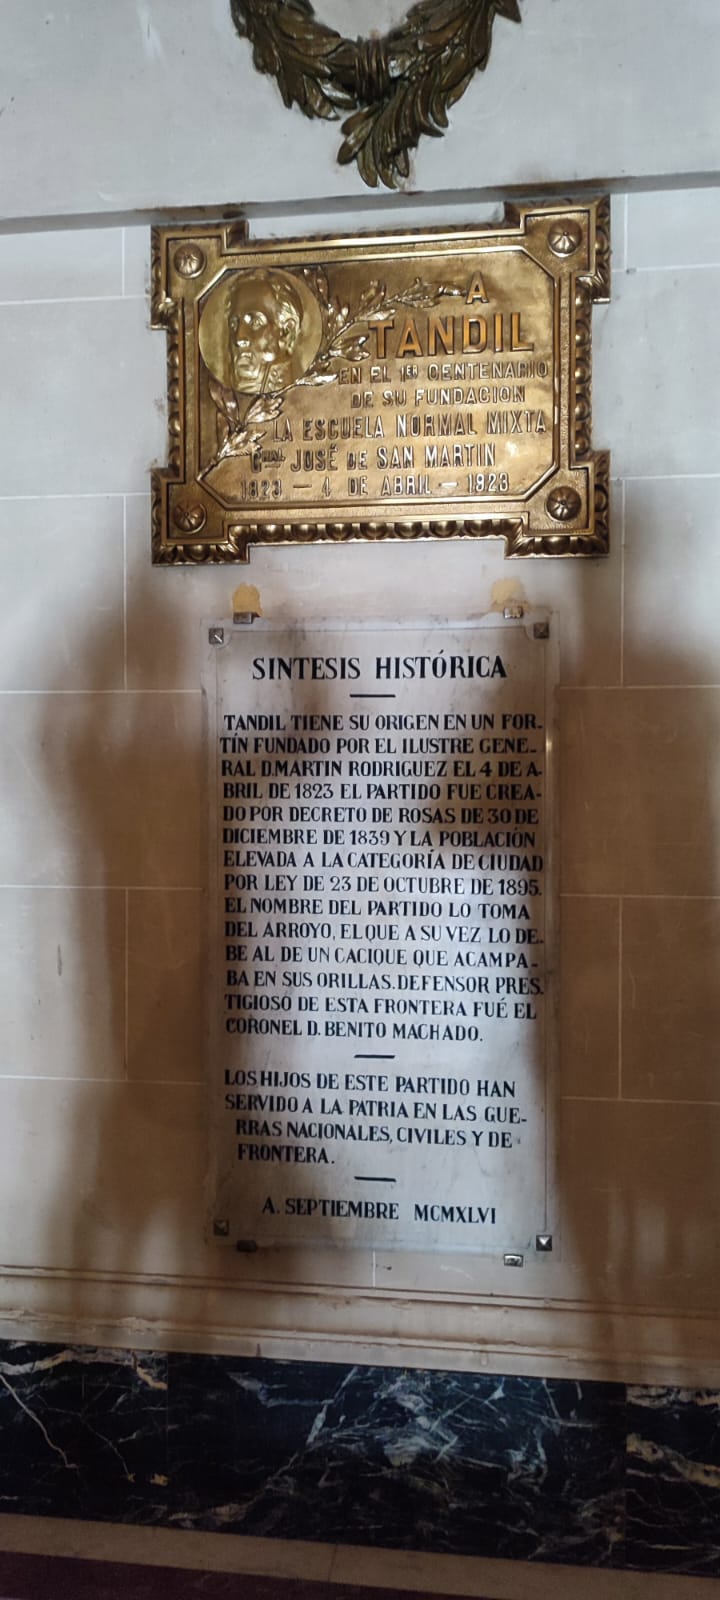 A
TANDIL
EN EL 1ER CENTENARIO
DE SU FUNDACION
LA ESCUELA NORMAL MIXTA
GRAL JOSÉ DE SAN MARTIN
1823 — 4 DE ABRIL — 1923
SINTESIS HISTÓRICA
TANDIL TIENE SU ORIGEN EN UN FOR-
TÍN FUNDADO POR EL ILUSTRE GENE-
RAL D.MARTIN RODRIGUEZ EL 4 DE A-
BRIL DE 1823 EL PARTIDO FUE CREA-
DO POR DECRETO DE ROSAS DE 30 DE
DICIEMBRE DE 1839 Y LA POBLACIÓN
ELEVADA A LA CATEGORÍA DE CIUDAD
POR LEY DE 23 DE OCTUBRE DE 1895.
EL NOMBRE DEL PARTIDO LO TOMA
DEL ARROYO, EL QUE A SU VEZ LO DE-
BE AL DE UN CACIQUE QUE ACAMPA-
BA EN SUS ORILLAS. DEFENSOR PRES-
TIGIOSO DE ESTA FRONTERA FUÉ EL
CORONEL D. BENITO MACHADO.
LOS HIJOS DE ESTE PARTIDO HAN
SERVIDO A LA PATRIA EN LAS GUE-
RRAS NACIONALES, CIVILES Y DE
FRONTERA.
A. SEPTIEMBRE MCMXLVI